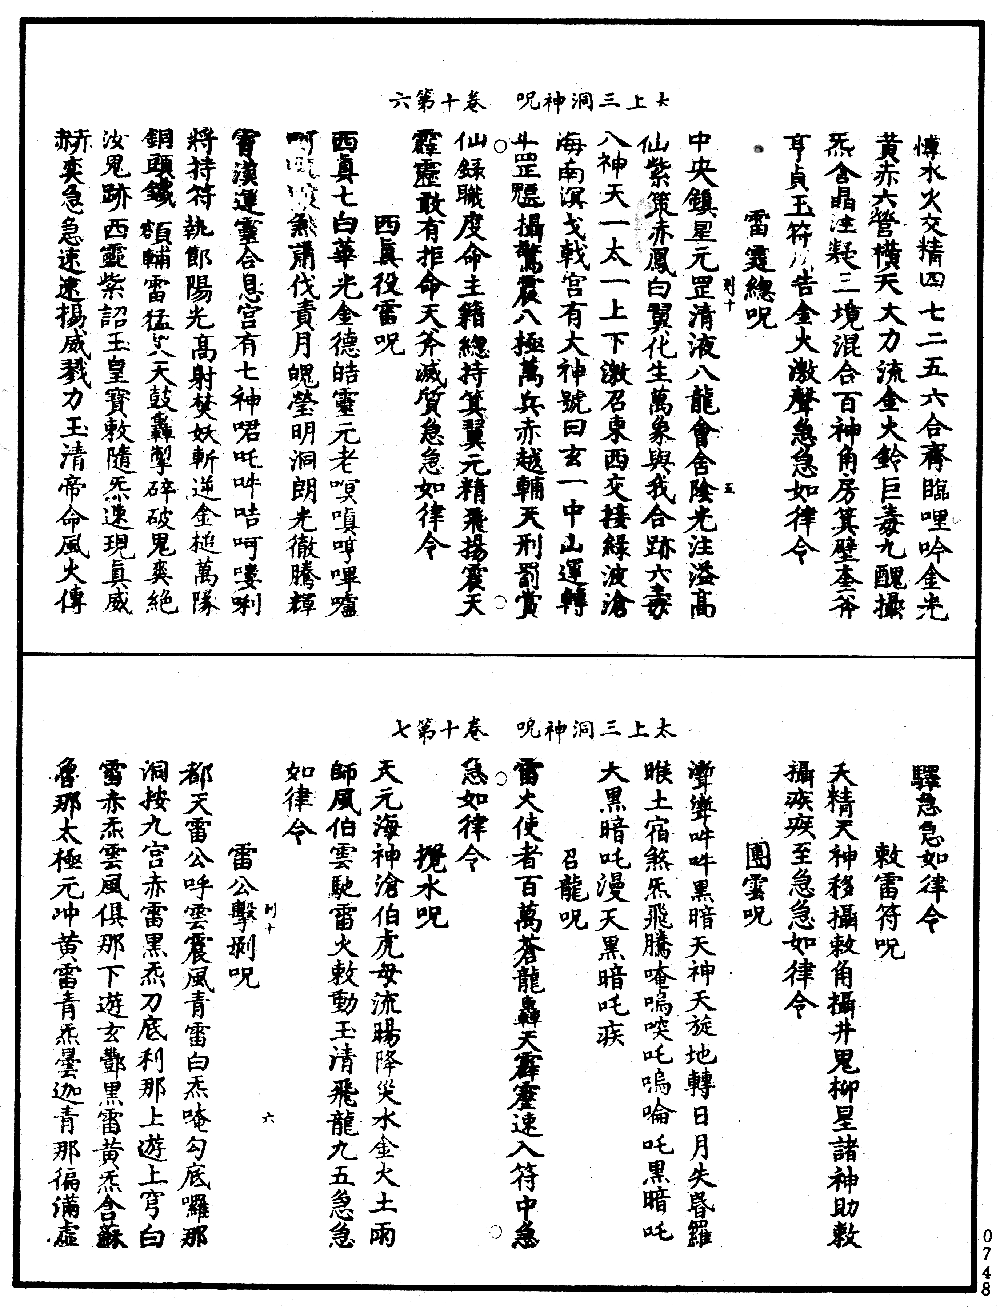 太上三洞神呪　卷十第六
愽水火交精四七二五六合齊臨哩吟金光
黄赤六管横天大力流金火鈴巨毒九醜攝
炁含晶注凝三境混合百神角房箕壁奎斧
亨貞玉符告金火激聲急急如律令
雷霆總呪
中央鎮星元罡清液八龍會舍陰光注溢高
仙紫策赤鳳白翼化生萬象與我合跡六毒
八神天一太一上下激召東西交接緑波滄
海南溟戈戟宫有大神號曰玄一中山運轉
斗罡魒攝驚震八極萬兵赤越輔天刑罰賞
仙録職度命主籍總持箕翼元精飛揚震天
霹靂敢有拒命天斧滅質急急如律令
西真役雷呪
西真七白華光金德皓靈元老嗊嗔哼嗶嚧
肅伐責月魄瑩明洞朗光徹騰輝
霄漢運靈合息宫有七神㖛吒吽咭呵嘍唎
將持符執節陽光高射焚妖斬逆金槌萬隊
銅頭鐵額輔雷猛吏天鼓轟掣碎破鬼爽絶
汝鬼跡西靈紫詔玉皇寶敕隨炁速現真威
赫奕急急速速揚威戮力玉清帝命風火傳
太上三洞神呪　卷十第七
驛急急如律令
敕雷符呪
天精天神移攝敕角攝井鬼柳星諸神助敕
攝疾疾至急急如律令
團雲呪
漸聻吽吽黑暗天神天旋地轉日月失昏羅
睺土宿煞炁飛騰唵嗚唊吒嗚啽吒黑暗吒
大黑暗吒漫天黑暗吒疾
召龍呪
雷火使者百萬蒼龍轟天霹靂速入符中急
急如律令
攪水呪
天元海神滄伯虎母流暘降災水金火土雨
師風伯雲馳雷火敕動玉清飛龍九五急急
如律令
雷公擊剥呪
都天雷公呼雲震風青雷白炁唵勾底囉那
洞按九宫赤雷黑炁刀底利那上遊上穹白
雷赤炁雲風俱那下遊玄酆黑雷黄炁含蘇
魯那太極元冲黄雷青炁曇迦青那徧滿虚
0748